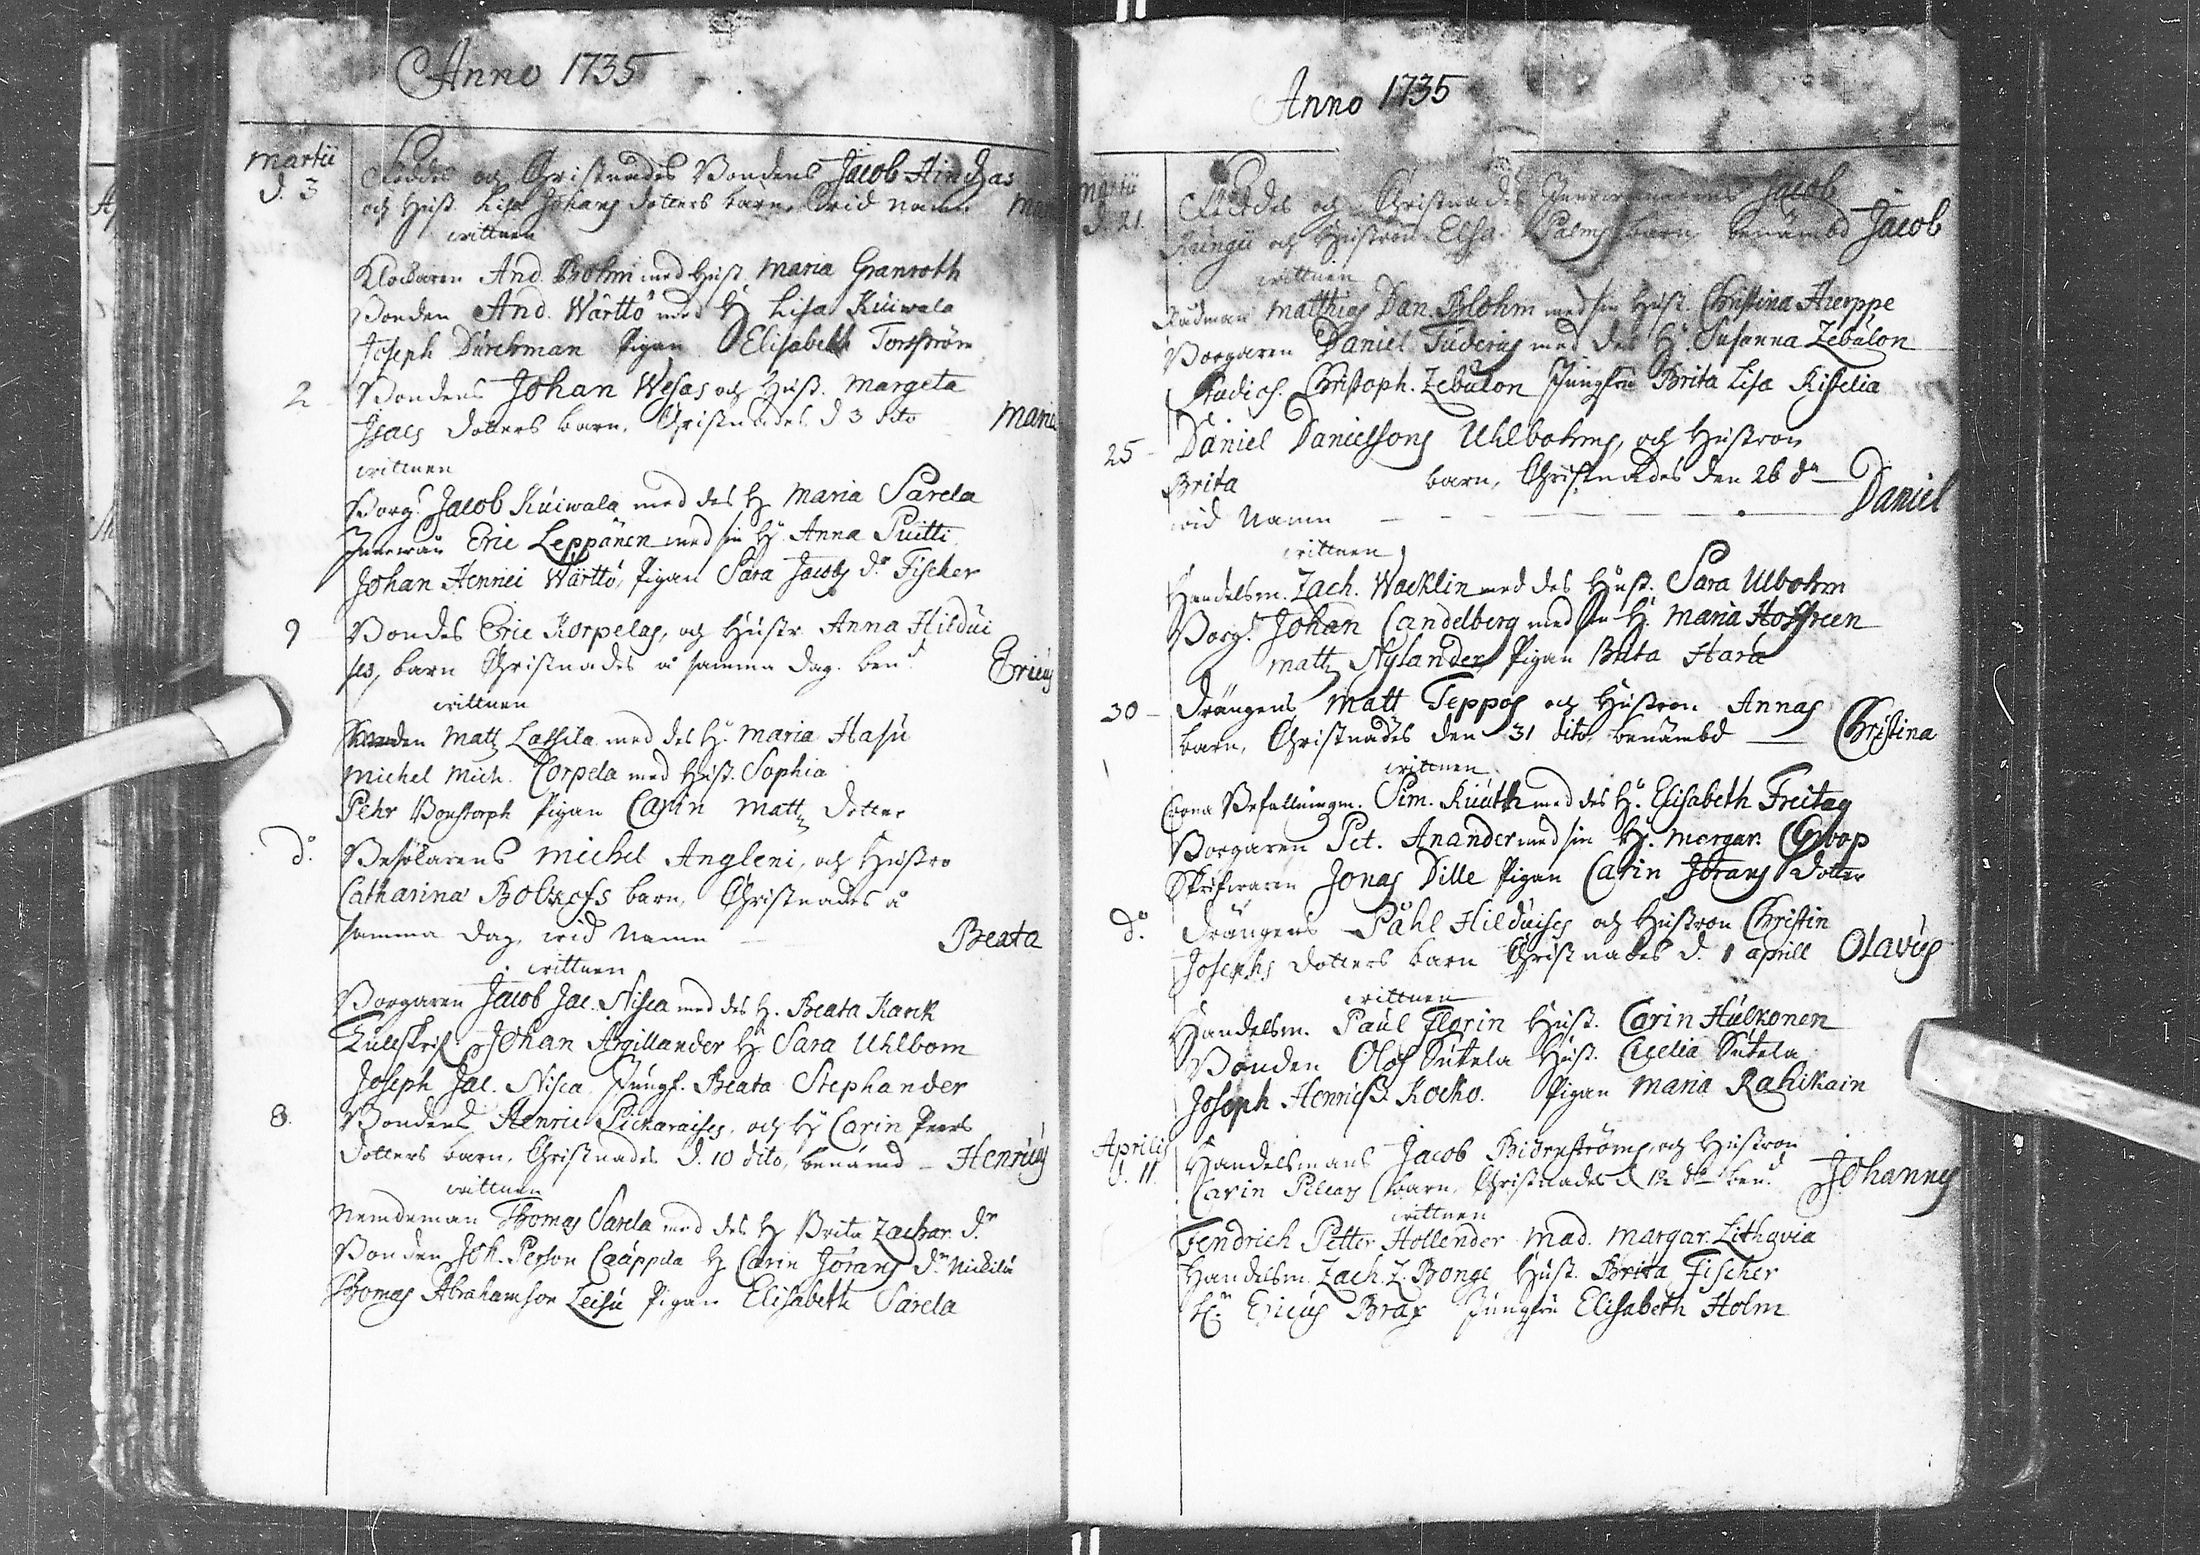 Anno 1735
Martii d. 3 Föddes och Christnades Bondens Jacob Hindzas
och Hust. Lisa Johans dotters barn, wid namn
wittnen
Klockaren And. Bohm med Hust. Maria Granroth
Bonden And. Wärttö med H. Lisa Kuiwala
Joseph Durchman Pigan Elisabeth Torström
2 Bondens Johan Wesas och Hust. Margeta
Isacs dotters barn, Christnades d 3 dito Maria
wittnen
Borg. Jacob Kuiwala med des H. Maria Sarela
Eric Leppänen med sin H. Anna Puitti
Johan Henrici Wärttö, Pigan Sara Jacobs dr Fischer
9 Bondes Eric Korpelas, och Hustr. Anna Hildui
ses, barn Christnades å samma dag. ben.d Ericus
wittnen
Matts Lassila med des H. Maria Hasu
Michel Mich. Corpela med Hust. Sophia
Pehr Bonstorph Pigan Carin Matts dotter
do. Besökarens Michel Angleni, och Hustro
Catharina barn, Christnades å
samma dag, wid Namn Beata
wittnen
Borgaren Jacob Jac. Nisca med des H. Beata Karck
Tullskrif. Johan Argillander H. Sara Uhlbom
Joseph Jac. Nisca, Jungf. Beata Stephander
8. Bondens Henric och H. Carin Peers
dotters barn, Christnades d. 10 dito, benämd - Henricus
wittnen
Nemdeman Thomas Sarela med des H. Brita Zachar. dr
Bonden Joh. Person Caappila H. Carin Jörans dr Nickilä
Thomas Abrahamson Leisu Pigan Elisabeth Sarela
Anno 1735
Martii d. 21 Föddes och Christnades Jacob
och Hustrun Elsa Palms barn, benämbd Jacob
wittnen
Rådman Matthias Dan. Blohm med sin Hust. Christina Hierppe
Borgaren Daniel Tuderus med des H. Susanna Zebulon
Studios. Christoph. Zebulon Jungfru Brita Lisa Kistelia
25 - Daniel Danielssons Uhlbohms, och Hustron
Brita barn, Christnades den 26 do
wid Namn Daniel
wittnen
Handelsm. Zach. Wacklin med des Hust. Sara Ulbohm
Borg. Johan Candelberg med sin H. Maria Hoffreen
Matts Nylander Pigan Brita Hara
30 - Drängens Matt Teppos och Hustron Annas
barn, Christnades den 31 dito benämbd Christina
wittnen
Crono Befallningm. Sim. Kuuth med des H. Elisabeth Freitag
Borgaren Pet. Anander med sin H. Margar. Groop
Skrifwaren Jonas Dille Pigan Carin Jörans dotter
do. Drängens Påhl Hilduises och Hustron Christin
Josephs dotters barn Christnades d. 1 aprill Olavus
wittnen
Handelsm. Paul Florin Hust. Carin Hulkonen
Bonden Olof Sutela Hust. Cecelia Sutela
Joseph Henrics. Kocko. Pigan Maria Rahikain
Aprilis d. 11. Handelsmans Jacob Biörnströms, och Hustron
Carin barn, Christnades d 12 do ben.d Johannes
wittnen
Fendrich Petter Hollender Mad. Margar. Lithovia
Handelsm. Zach. Z. Bonge Hust. Brita Fischer
Hr. Ericus Brax Jungfru Elisabeth Holm